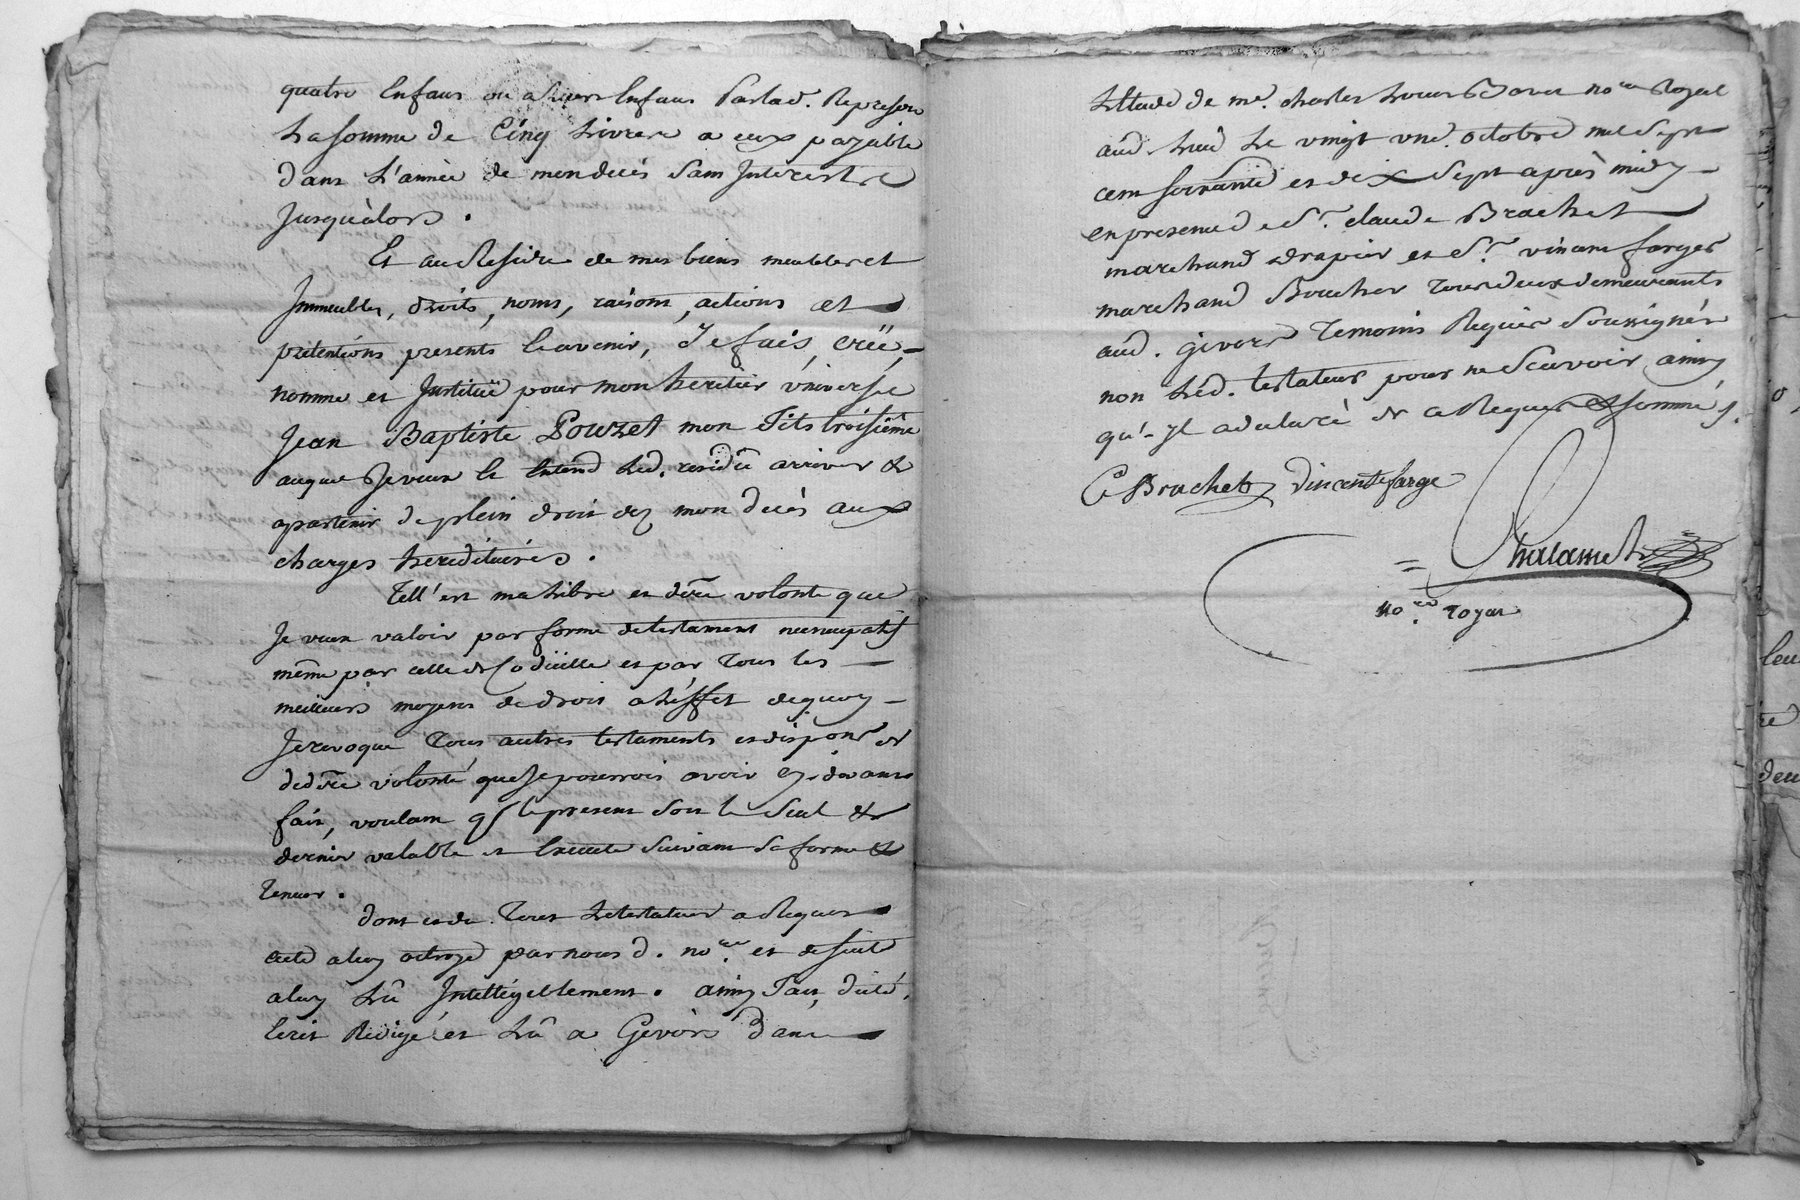 quatre Enfans ou a Leurs Enfans Parlad. Represon
La somme de Cinq Livres a eux payable
dans L'année de mon decés Sans Interest
Jusqu'àlors.
Et au Residu de mes biens meubles et
Immeubles, droits, noms, raisons, actions et
prétentions presents & avenir, Je fais, créé,
nomme et Institüe pour mon heretier Vniversel
Jean Baptiste Pouzet mon Fils troisiême
auquel Je veux & Entend Led. residû arriver &
apartenir de plein droit dez mon decès aux
charges hereditaires.
Tell'est ma Libre et dêre volonte que
Je veux valoir par forme de testament nuncupatif
même par celle de Codicille et par Tous les
meilleurs moyens de droit a L'éffet de quoy
Je revoque Tous autres testaments et dispons de
dedêre volonté que Je pourrois avoir cy-devant
fait, voulant q le present soit le Seul &
dernier valable et Executé Suivant Sa forme &
Teneur.
Dont et de Tout Le testateur a Requis
acte a luy octroyé par nous d. nore et de Suite
a luy Lû Intelligiblement. ainsy Fait, dicté,
Ecrit Redigé et Lû a Gevors Dans
L'Etude de me. charles Louis nore Royal
aud. Lieu Le vingt vne. octobre mil Sept
cent soixante et dix Sept après midy
en presence de Sr. claude Brachet
marchand drapier et Sr. vincent farges
marchand Boucher Tous deux demeurants
aud. givors Temoins Requis Soussignés
non Led. testateur pour ne Scavoir ainsy
qu'-Jl a declaré de ce Requis & sommé J.
C Brachet vincent farge
Chalamel
nore. royal